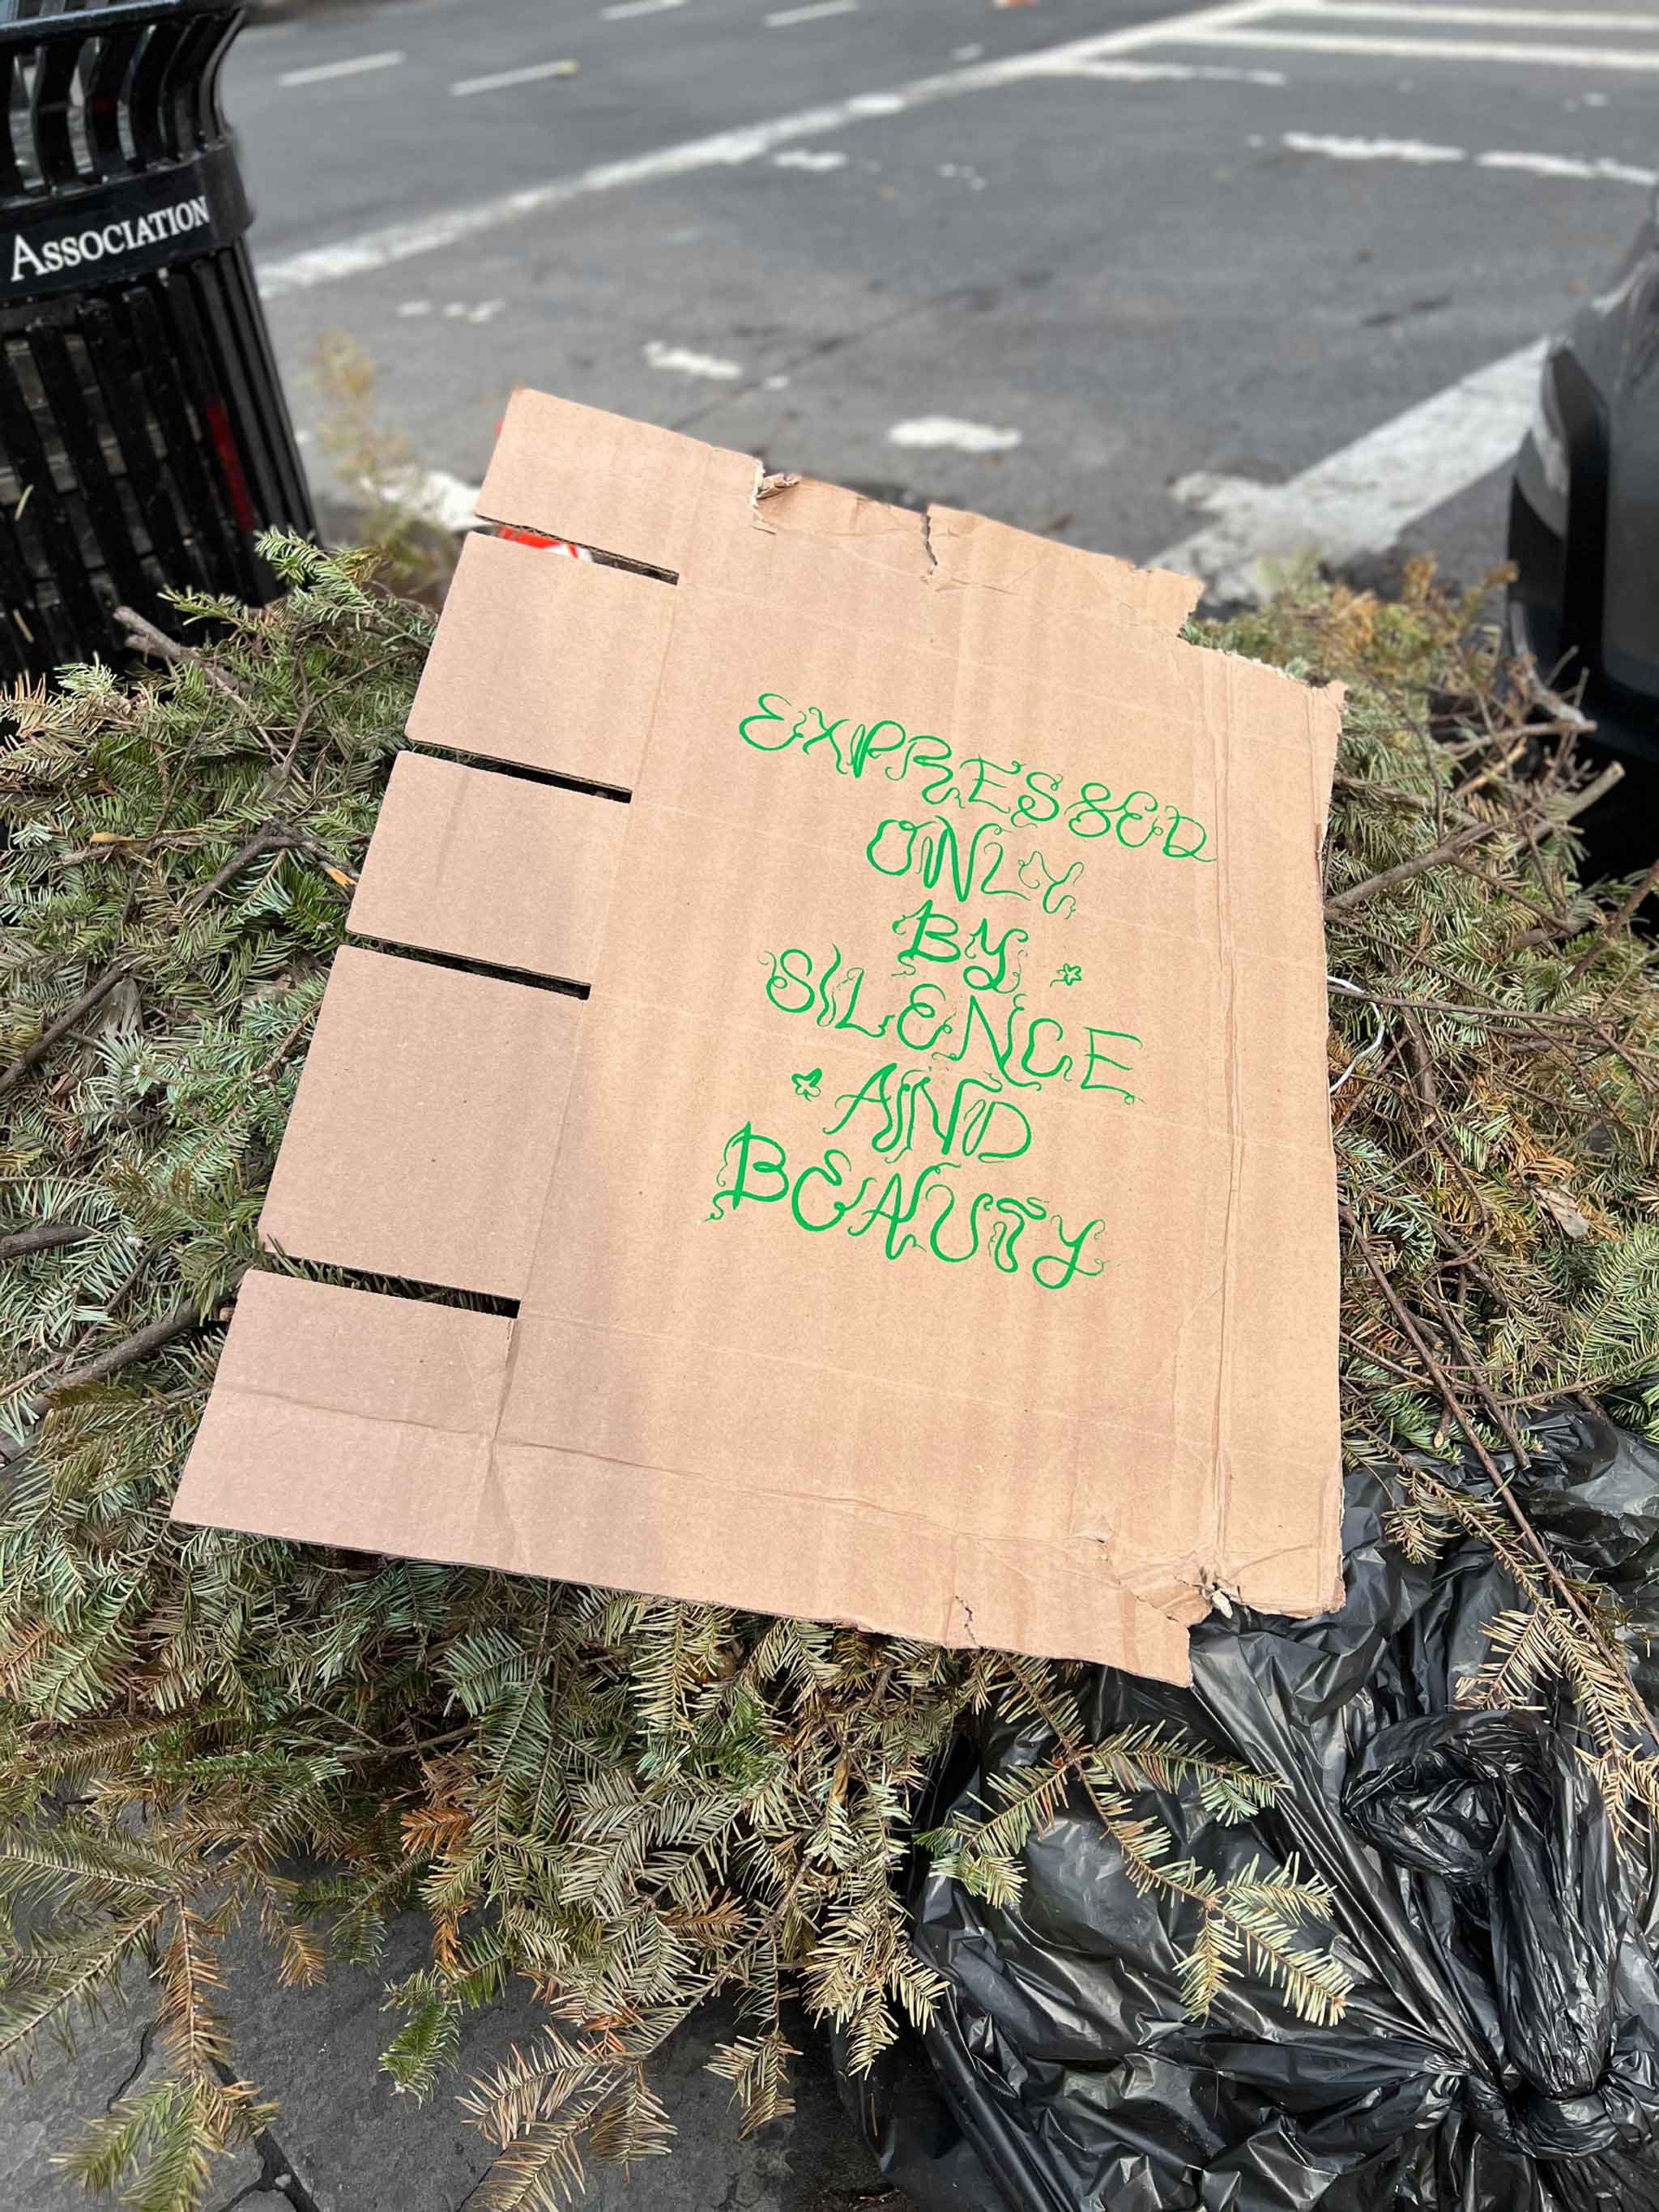 ASSOCIATION
EXPRESSED
ONLY
BY
SILENCE
AND
BEAUTY